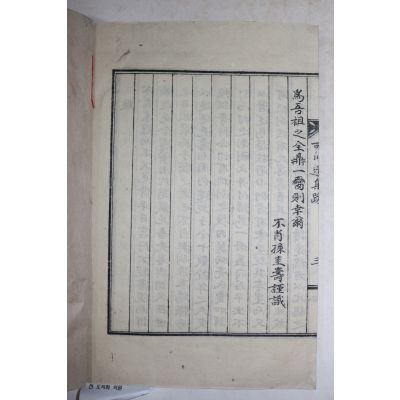 爲吾祖之全鼎一臠則幸爾
不肖孫圭壽謹識
遺集跋
三